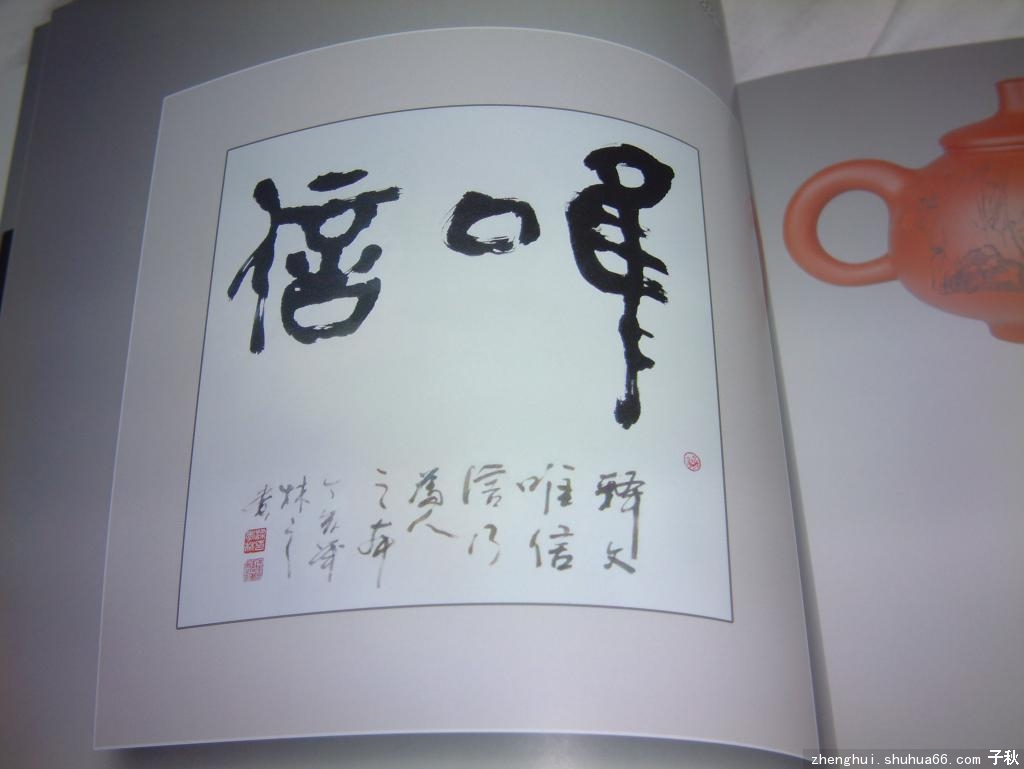 唯信
释文
唯信
信乃
為人
之本
丁亥
林
書
zhenghui.shuhua66.com 子秋